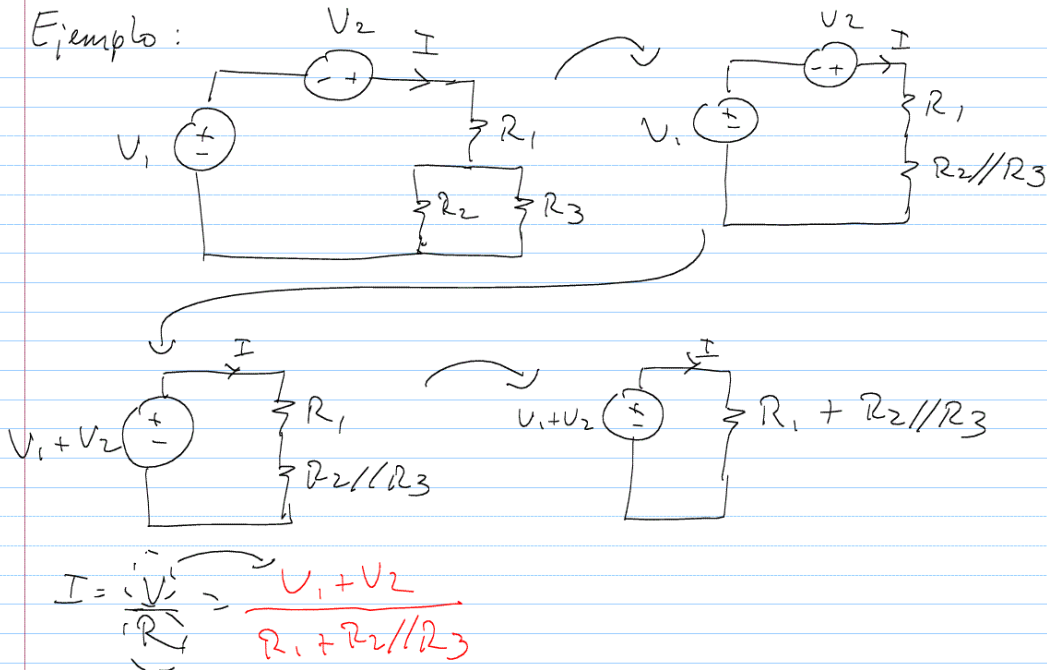 Ejemplo:
V2
I
- +
V1
+
-
R1
R2
R3
V2
I
- +
V1
+
-
R1
R2//R3
I
V1+V2
+
-
R1
R2//R3
I
V1+V2
+
-
R1 + R2//R3
I = V/R = V1+V2/R1+R2//R3